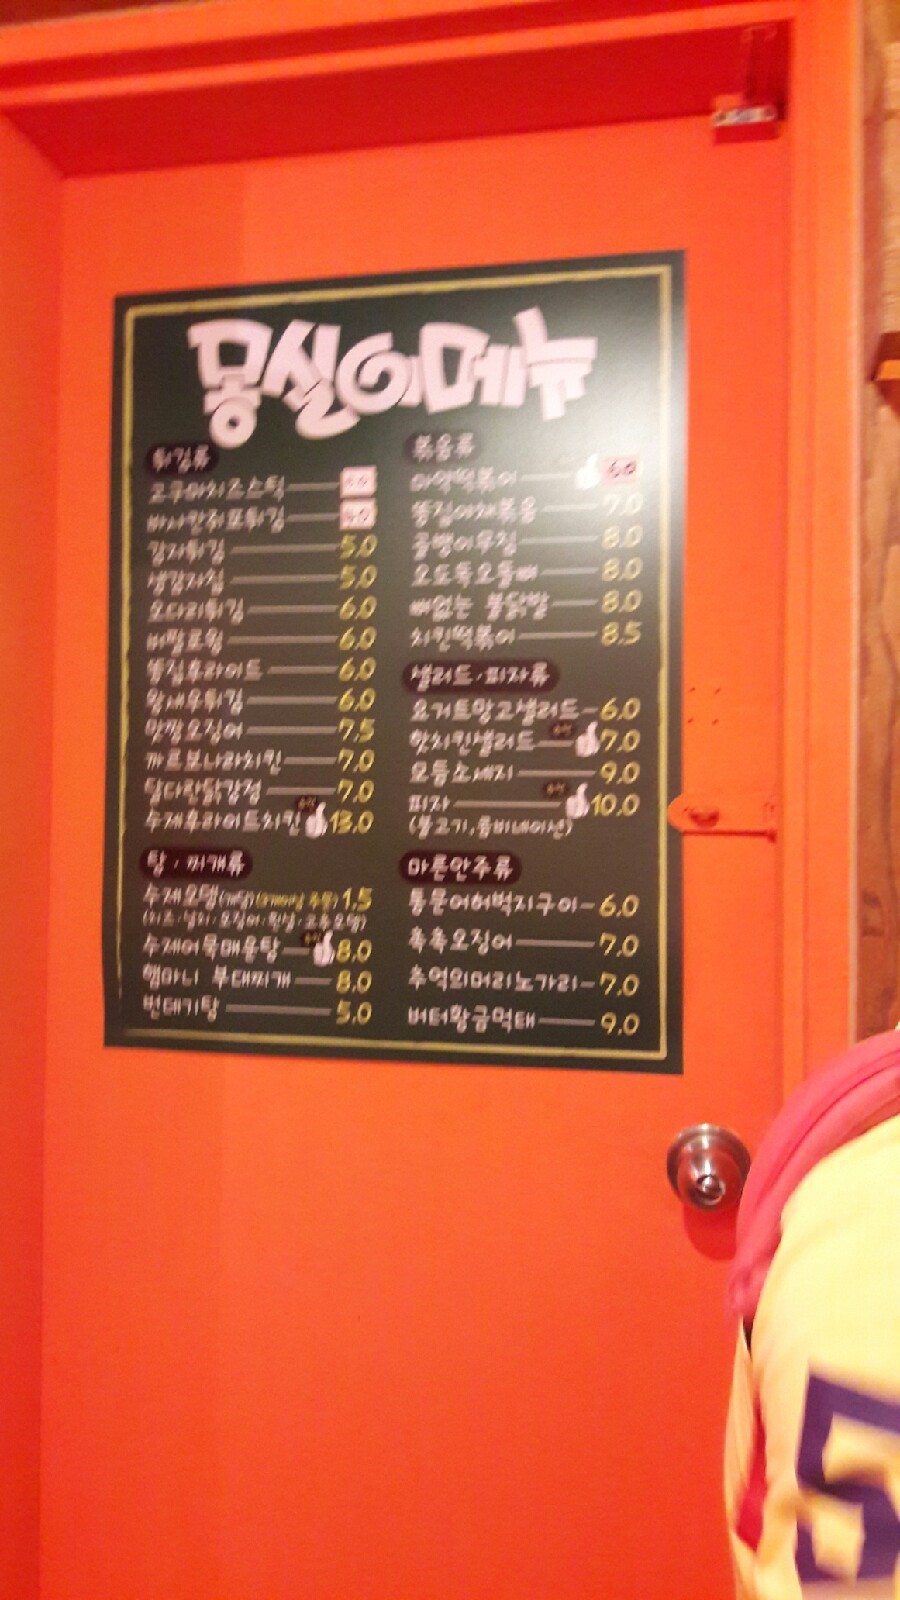 몽실이메뉴
튀김류
고구마치즈스틱
바사칸쥐포튀김
감자튀김 5.0
생감자칩 5.0
오다리튀김 6.0
버팔로윙 6.0
똥집후라이드 6.0
왕새우튀김 6.0
맛짱오징어 7.5
까르보나라치킨 7.0
달다란닭강정 7.0
수제후라이드치킨 13.0
탕·찌개류
수제오뎅 1,5
수제어묵매운탕 8.0
햄마니 부대찌개 8.0
번데기탕 5.0
볶음류
마약떡볶이 6.0
똥집야채볶음 7.0
골뱅이무침 8.0
오도독오돌뼈 8.0
뼈없는 불닭발 8.0
치킨떡볶이 8.5
샐러드·피자류
요거트망고샐러드 6.0
핫치킨샐러드 7.0
모듬소세지 9.0
피자 10.0
(불고기,콤비네이션)
마른안주류
통문어허벅지구이 6.0
촉촉오징어 7.0
추억의머리노가리 7.0
버터황금먹태 9.0